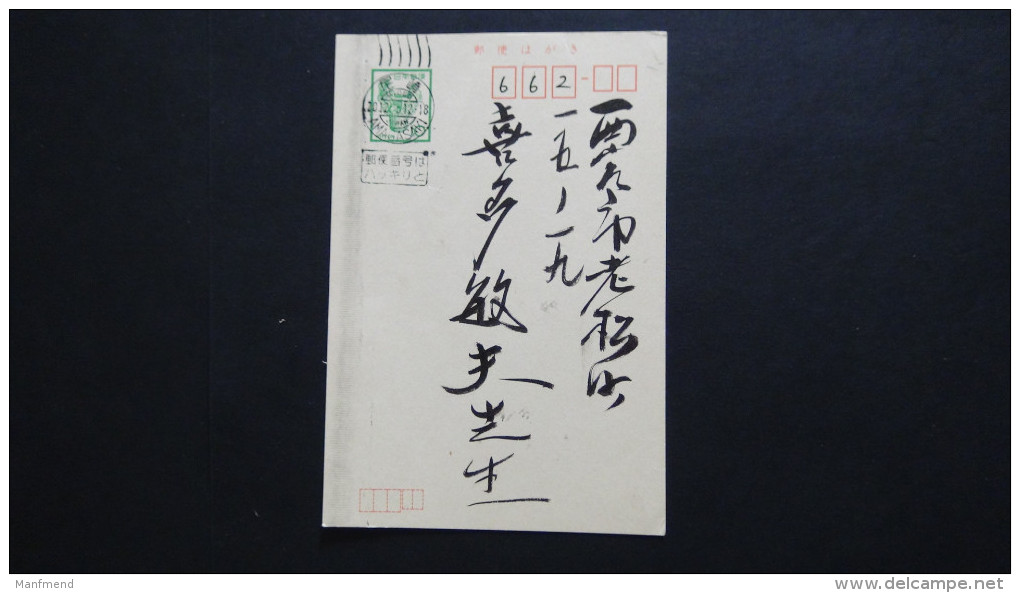 郵便はがき
662
西宮市老松町
一五ノ一九
喜多敏夫先生
郵便番号は
ハッキリと
Manfmend
www.delcampe.net